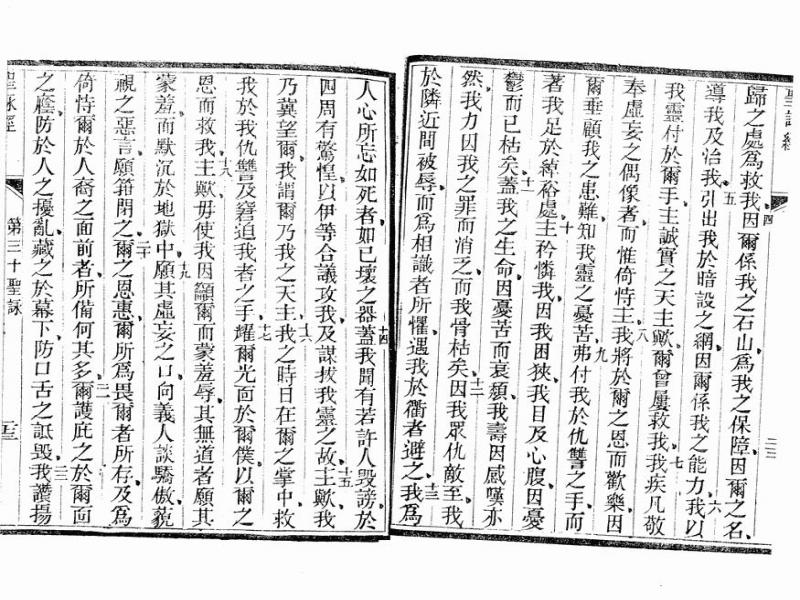 聖詠經
二三
歸之處爲救我四因爾係我之石山爲我之保障因爾之名
導我及治我五引出我於暗設之網因爾係我之能力六我以
我靈付於爾手主誠實之天主歟爾曾屢救我七我疾凡敬
奉虛妄之偶像者而惟倚恃主八我將於爾之恩而歡樂因
爾垂顧我之患難知我靈之憂苦九弗付我於仇讐之手而
著我足於綽裕處十主矜憐我因我困狹我目及心腹因憂
鬱而已枯矣十一蓋我之生命因憂苦而衰頹我壽因感嘆亦
然我力因我之罪而消乏而我骨枯矣十二因我眾仇敵至我
於隣近間被辱而爲相識者所懼遇我於衢者避之十三我爲
人心所忘如死者如已壞之器十四蓋我聞有若許人毀謗於
四周有驚惶以伊等合議攻我及謀拔我靈之故十五主歟我
乃冀望爾我謂爾乃我之天主十六我之時日在爾之掌中救
我於我仇讐及窘迫我者之手十七耀爾光面於爾僕以爾之
恩而救我十八主歟毋使我因籲爾而蒙羞辱其無道者願其
蒙羞而默沉於地獄中十九願其虛妄之口向義人談驕傲藐
視之惡言願箝閉之二十爾之恩惠爾所爲畏爾者所存及爲
倚恃爾於人裔之面前者所備何其多二一爾護庇之於爾面
之蔭防於人之擾亂藏之於幕下防口舌之詆毀二二我讚揚
聖詠經
第三十聖詠
二三